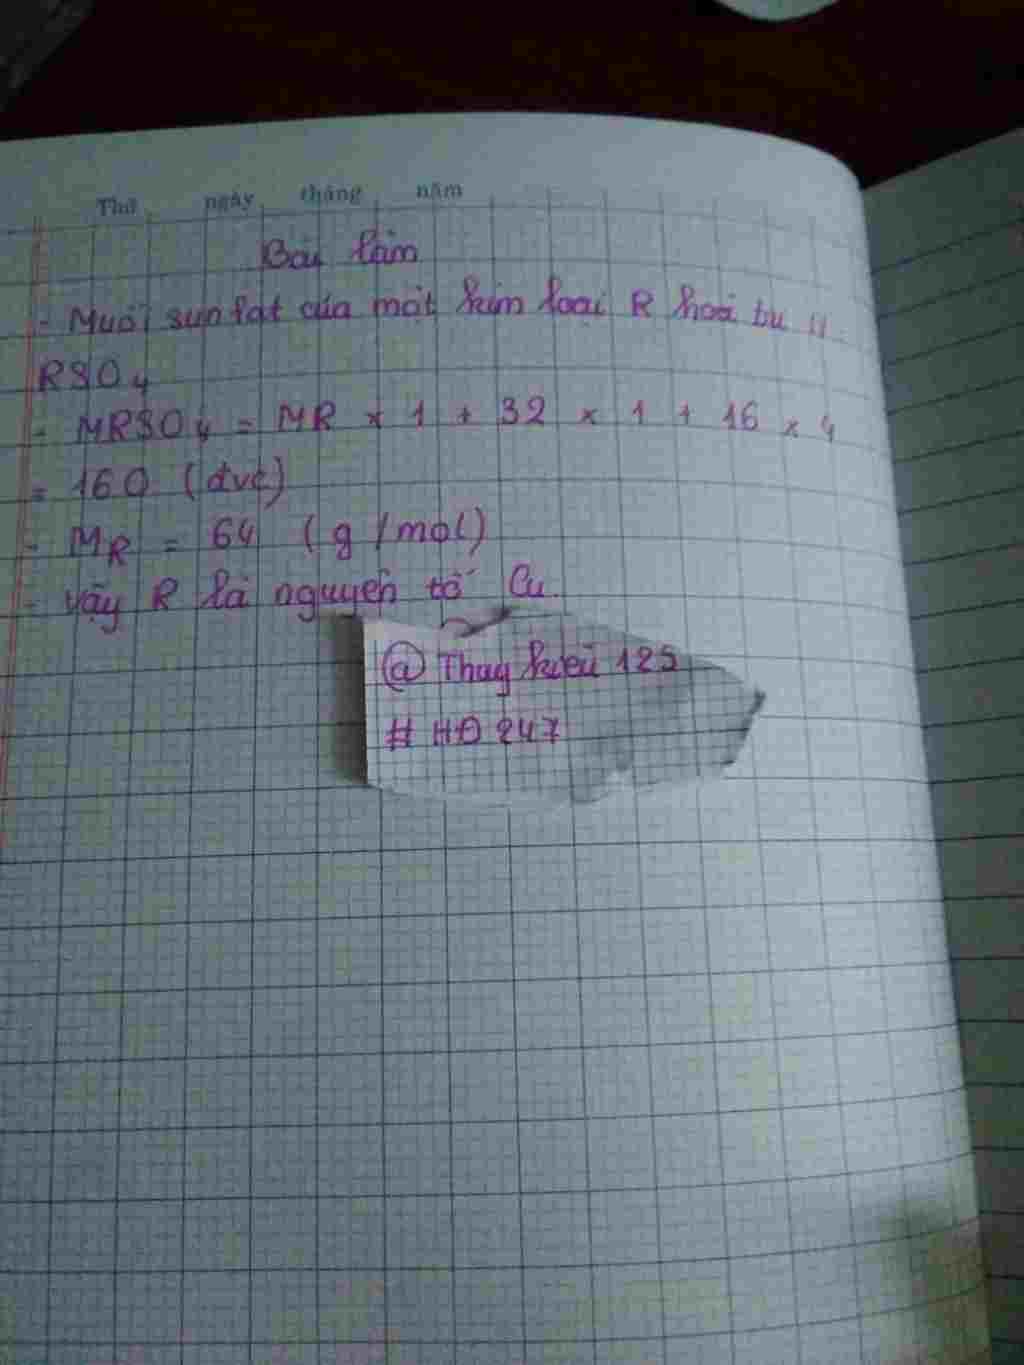 Thứ ngày tháng năm
Bài làm
- Muối sunfat của một kim loại R hoá trị II
RSO4
- MRSO4 = MR x 1 + 32 x 1 + 16 x 4
= 160 (đvc)
- MR = 64 (g/mol)
- Vậy R là nguyên tố Cu.
@ Thuy kieu 125
# HĐ 247